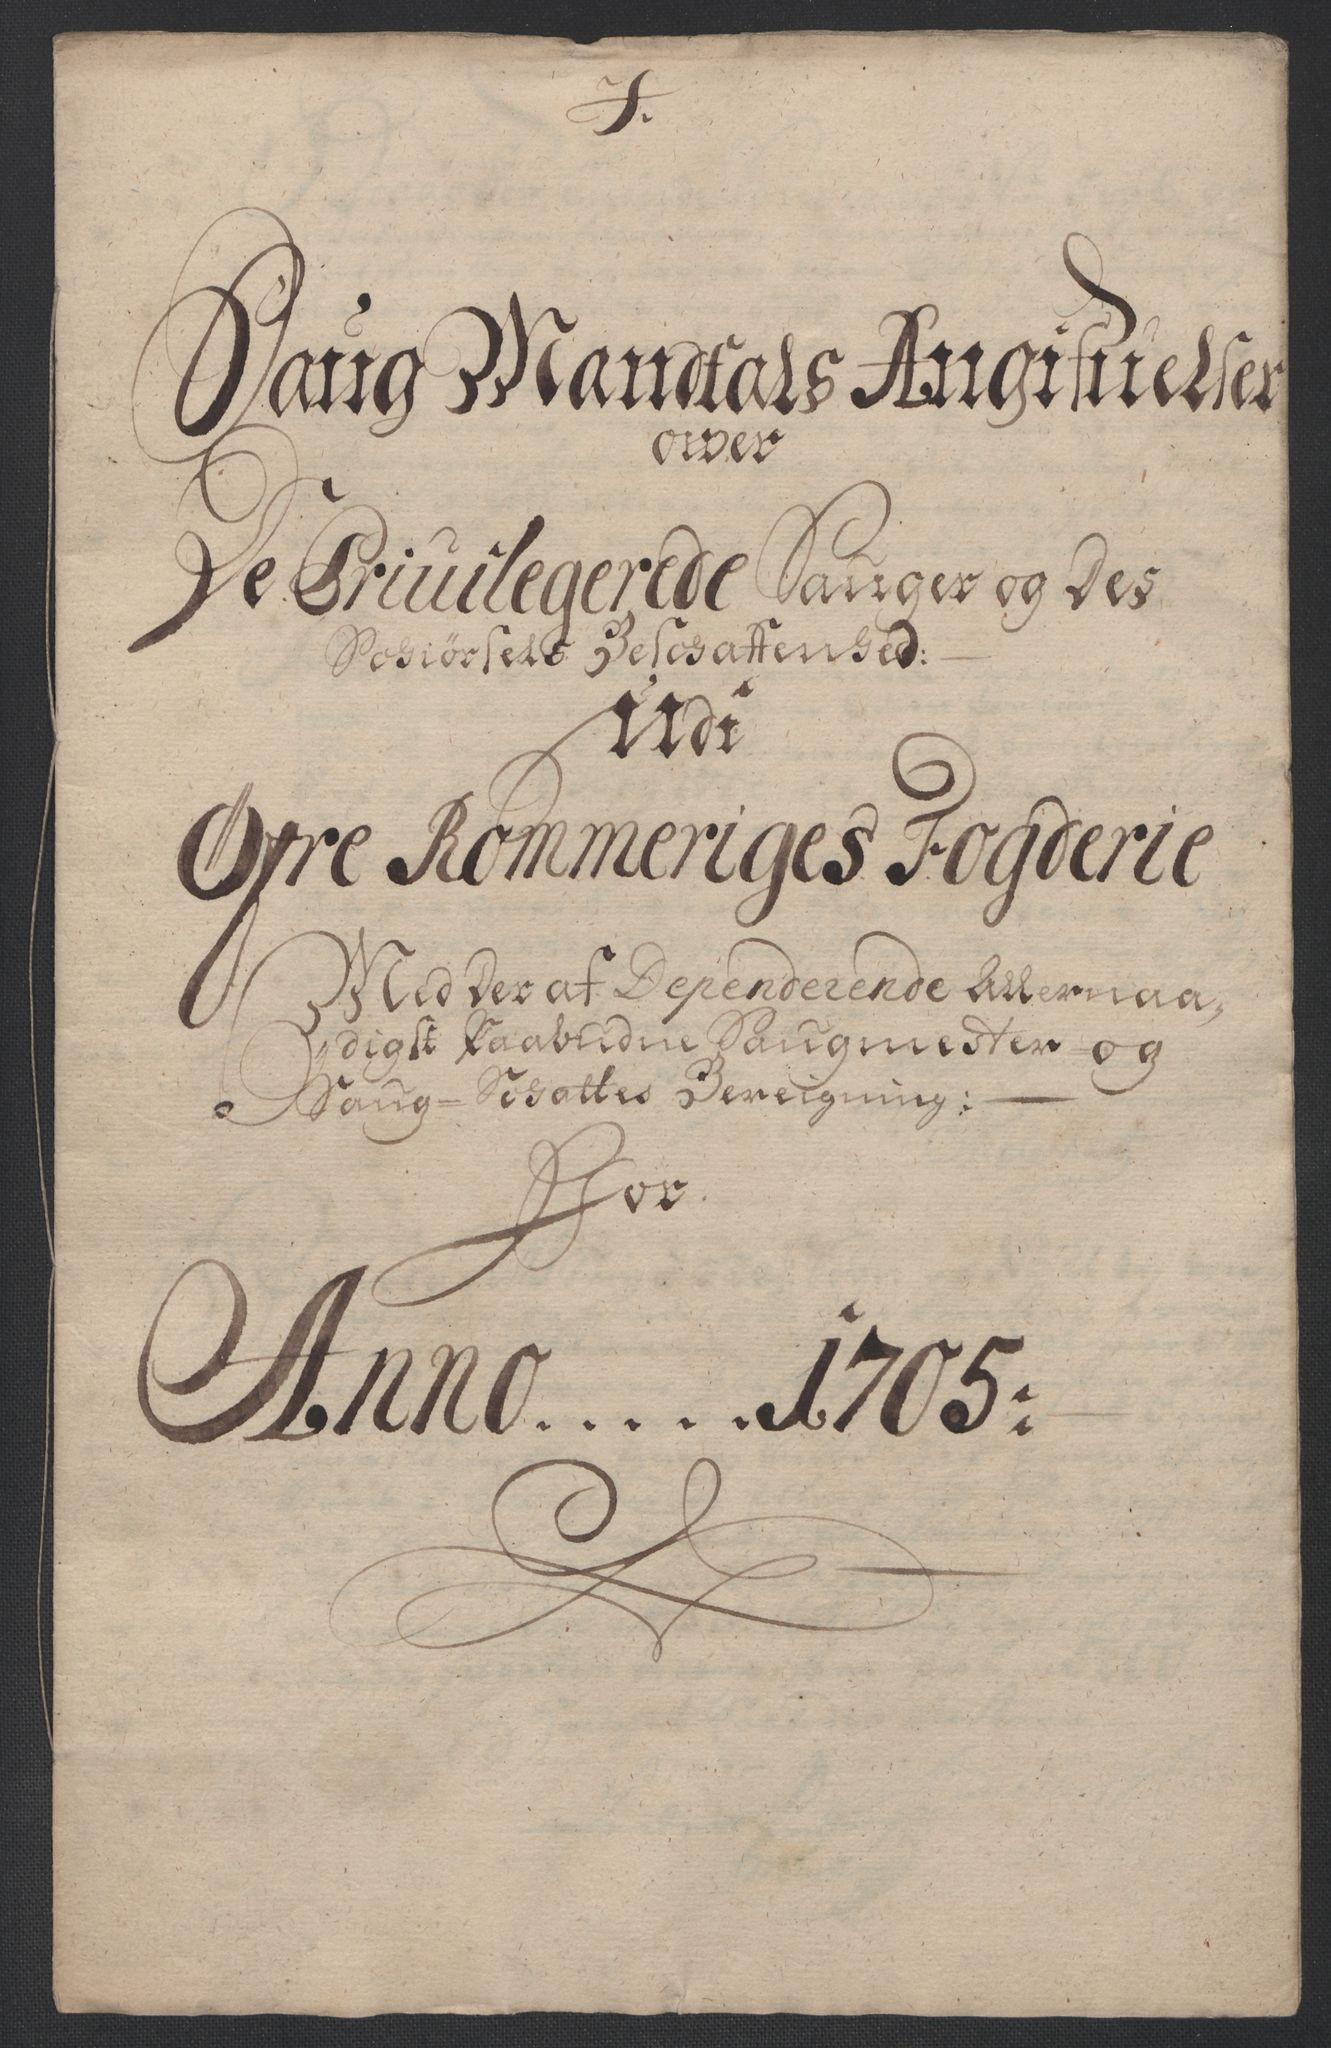 J.
Saug Mandtals Angifuelser
over
De Priuilegerede Sauger og Des
Schiørsels Beschaffenhed:
Udi
Øfre Rommeriges Fogderie
Med Der af Dependerende Allernaa-
digst Paabudne Saugmester og
Saug-Schattes Bereigning:
For
Anno.....1705: